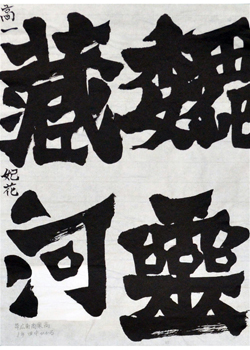 魏靈
藏河
高一 妃花